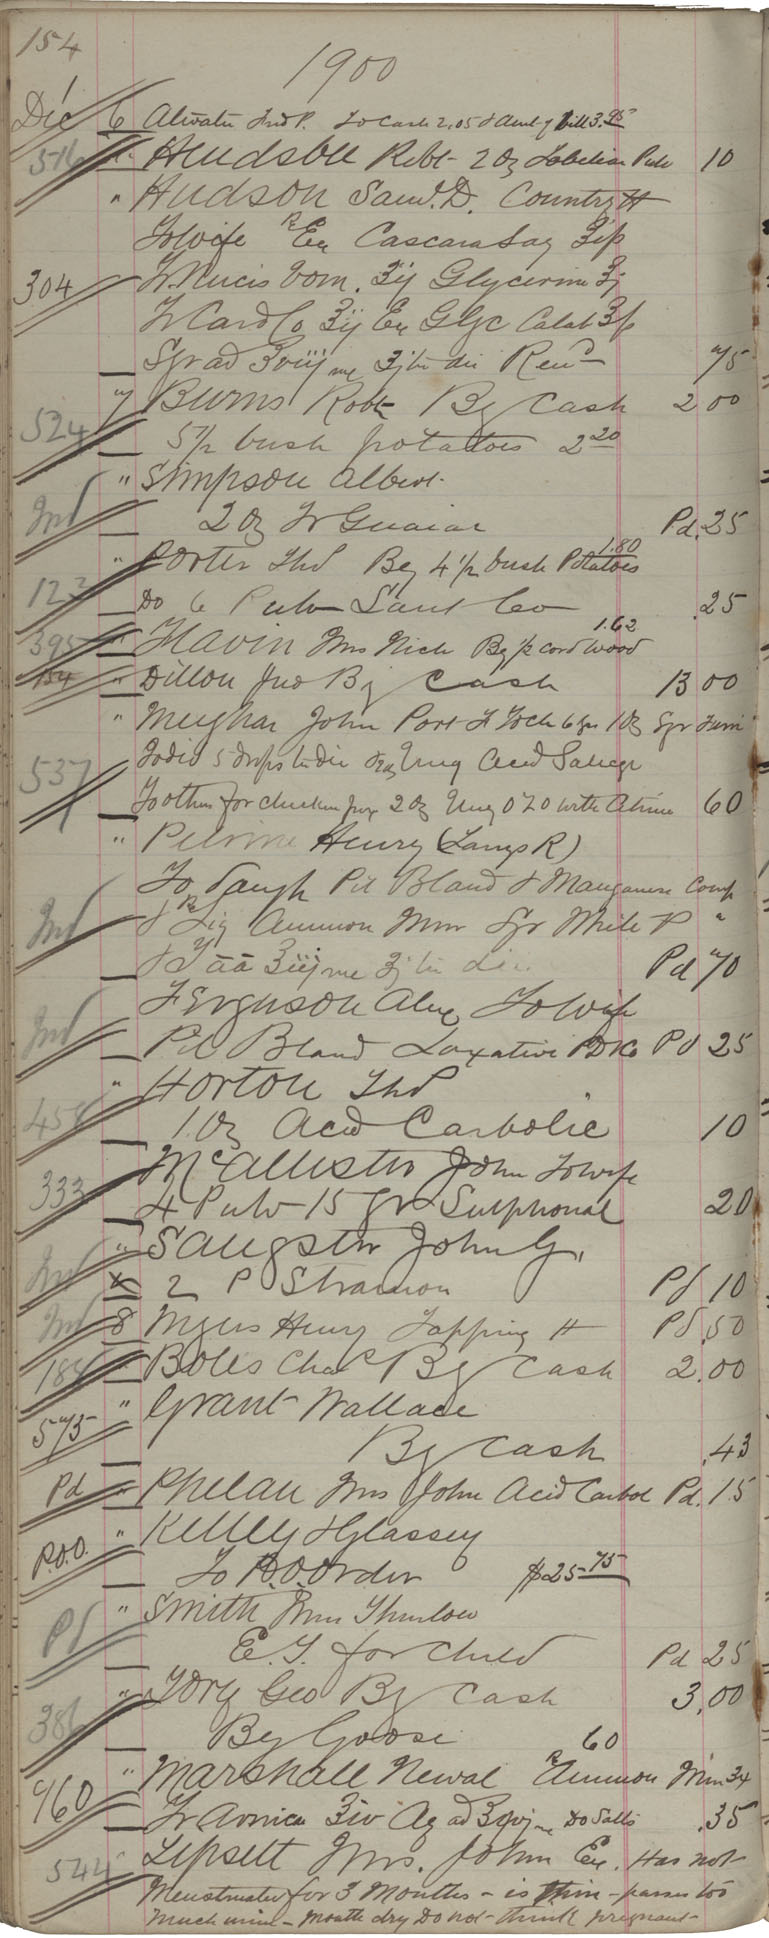 154
1900
Dec 6 Atwater Fred P. To Cash 2.05 & Amt of bill 3.95
516 " Hudson Robt 2 Oz Lobelia Pulv 10
" Hudson Saml. D. Country H
To Wife Rx Ex Cascara Sag ℥ip
304 Tr. Nucis Vom. ʒij Glycerine ℥j
Tr Card Co ℥ij Ex Glyc Calab ℥p
Syr ad ℥viij me ʒj ter die Rend 75
7 Burns Robt By Cash 2 00
524 5 1/2 bush potatoes 2 20
" Simpson Albert
Ind 2 Oz Tr Guaiac Pd. 25
" Porter Thd By 4 1/2 bush Potatoes 1.80
122 Do 6 Pulv Sant Co .25
395 " Flavin Mrs Nich By 1/2 cord Wood 1.62
154 " Dillon Jno By Cash 13 00
" Meighar John Port H 1 Oz Syr Ferri
537 Iodid 5 drops ter die & Ung Acid Salicyl
To other for chicken pox 2 Oz Ung with 60
" Henry (Lamps R)
To Daugh Pil Bland & Manganese Comp
Ind & Rx Liq Ammon Mur Syr White P "
& T āā ℥iij me ʒj ter die. Pd 70
Ferguson Alex To Wife
Ind Pil Bland Laxative PD&Co Pd 25
" Horton Thd
458 1 Oz Acid Carbolic 10
McAllister John To wife
333 4 Pulv 15 gr Sulphonal 20
" Sangster John G.
Ind x 2 P Stramon Pd 10
Ind 8 Myers Henry Tapping H Pd .50
184 " Boles Chas By Cash 2.00
" Grant Wallace
575 By Cash .43
Pd " Phelan Mrs John Acid Carbol Pd. 15
" Kelley & Glassey
P.O.O. To P.O. Order $25.75
" Smith Wm Thurlow
Pd E. T. for Child Pd 25
" Tory Geo By Cash 3.00
386 By Goose 60
" Marshall Newal Rx Ammon Mur
760 Tr Arnica ℥iv Aq ad ℥ me Do Salts .35
544 Lipsett Mrs. John Ex. Has not
Menstruated for 3 Months - is thin - passes too
much urine - mouth dry Do not think pregnant -